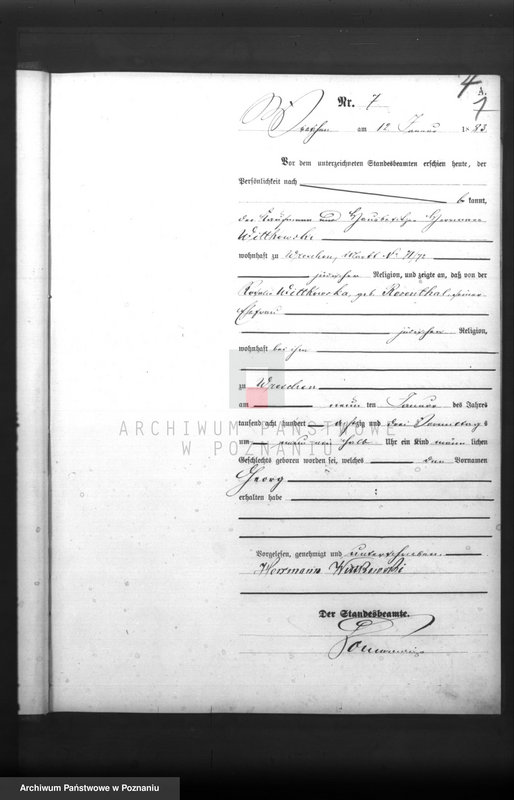 4
A.
1
Nr. 7
Wreschen am 12 Januar 1883.
Vor dem unterzeichneten Standesbeamten erschien heute, der
Persönlichkeit nach
bekannt,
der Kaufmann und Hausbesitzer Hermann
Wittkowski
wohnhaft zu Wreschen, Markt No 71/72
jüdischer Religion, und zeigte an, daß von der
Rosalie Wittkowska, geb Rosenthal, seiner
Ehefrau
jüdischer Religion,
wohnhaft bei ihm
zu Wreschen
am neun ten Januar des Jahres
tausend acht hundert achtzig und drei Vormittags
um neun ein halb Uhr ein Kind männlichen
Geschlechts geboren worden sei, welches den Vornamen
Georg
erhalten habe
Vorgelesen, genehmigt und unterschrieben
Herrmann Wittkowski
Der Standesbeamte.
ARCHIWUM PAŃSTWOWE
W POZNANIU
Archiwum Państwowe w Poznaniu